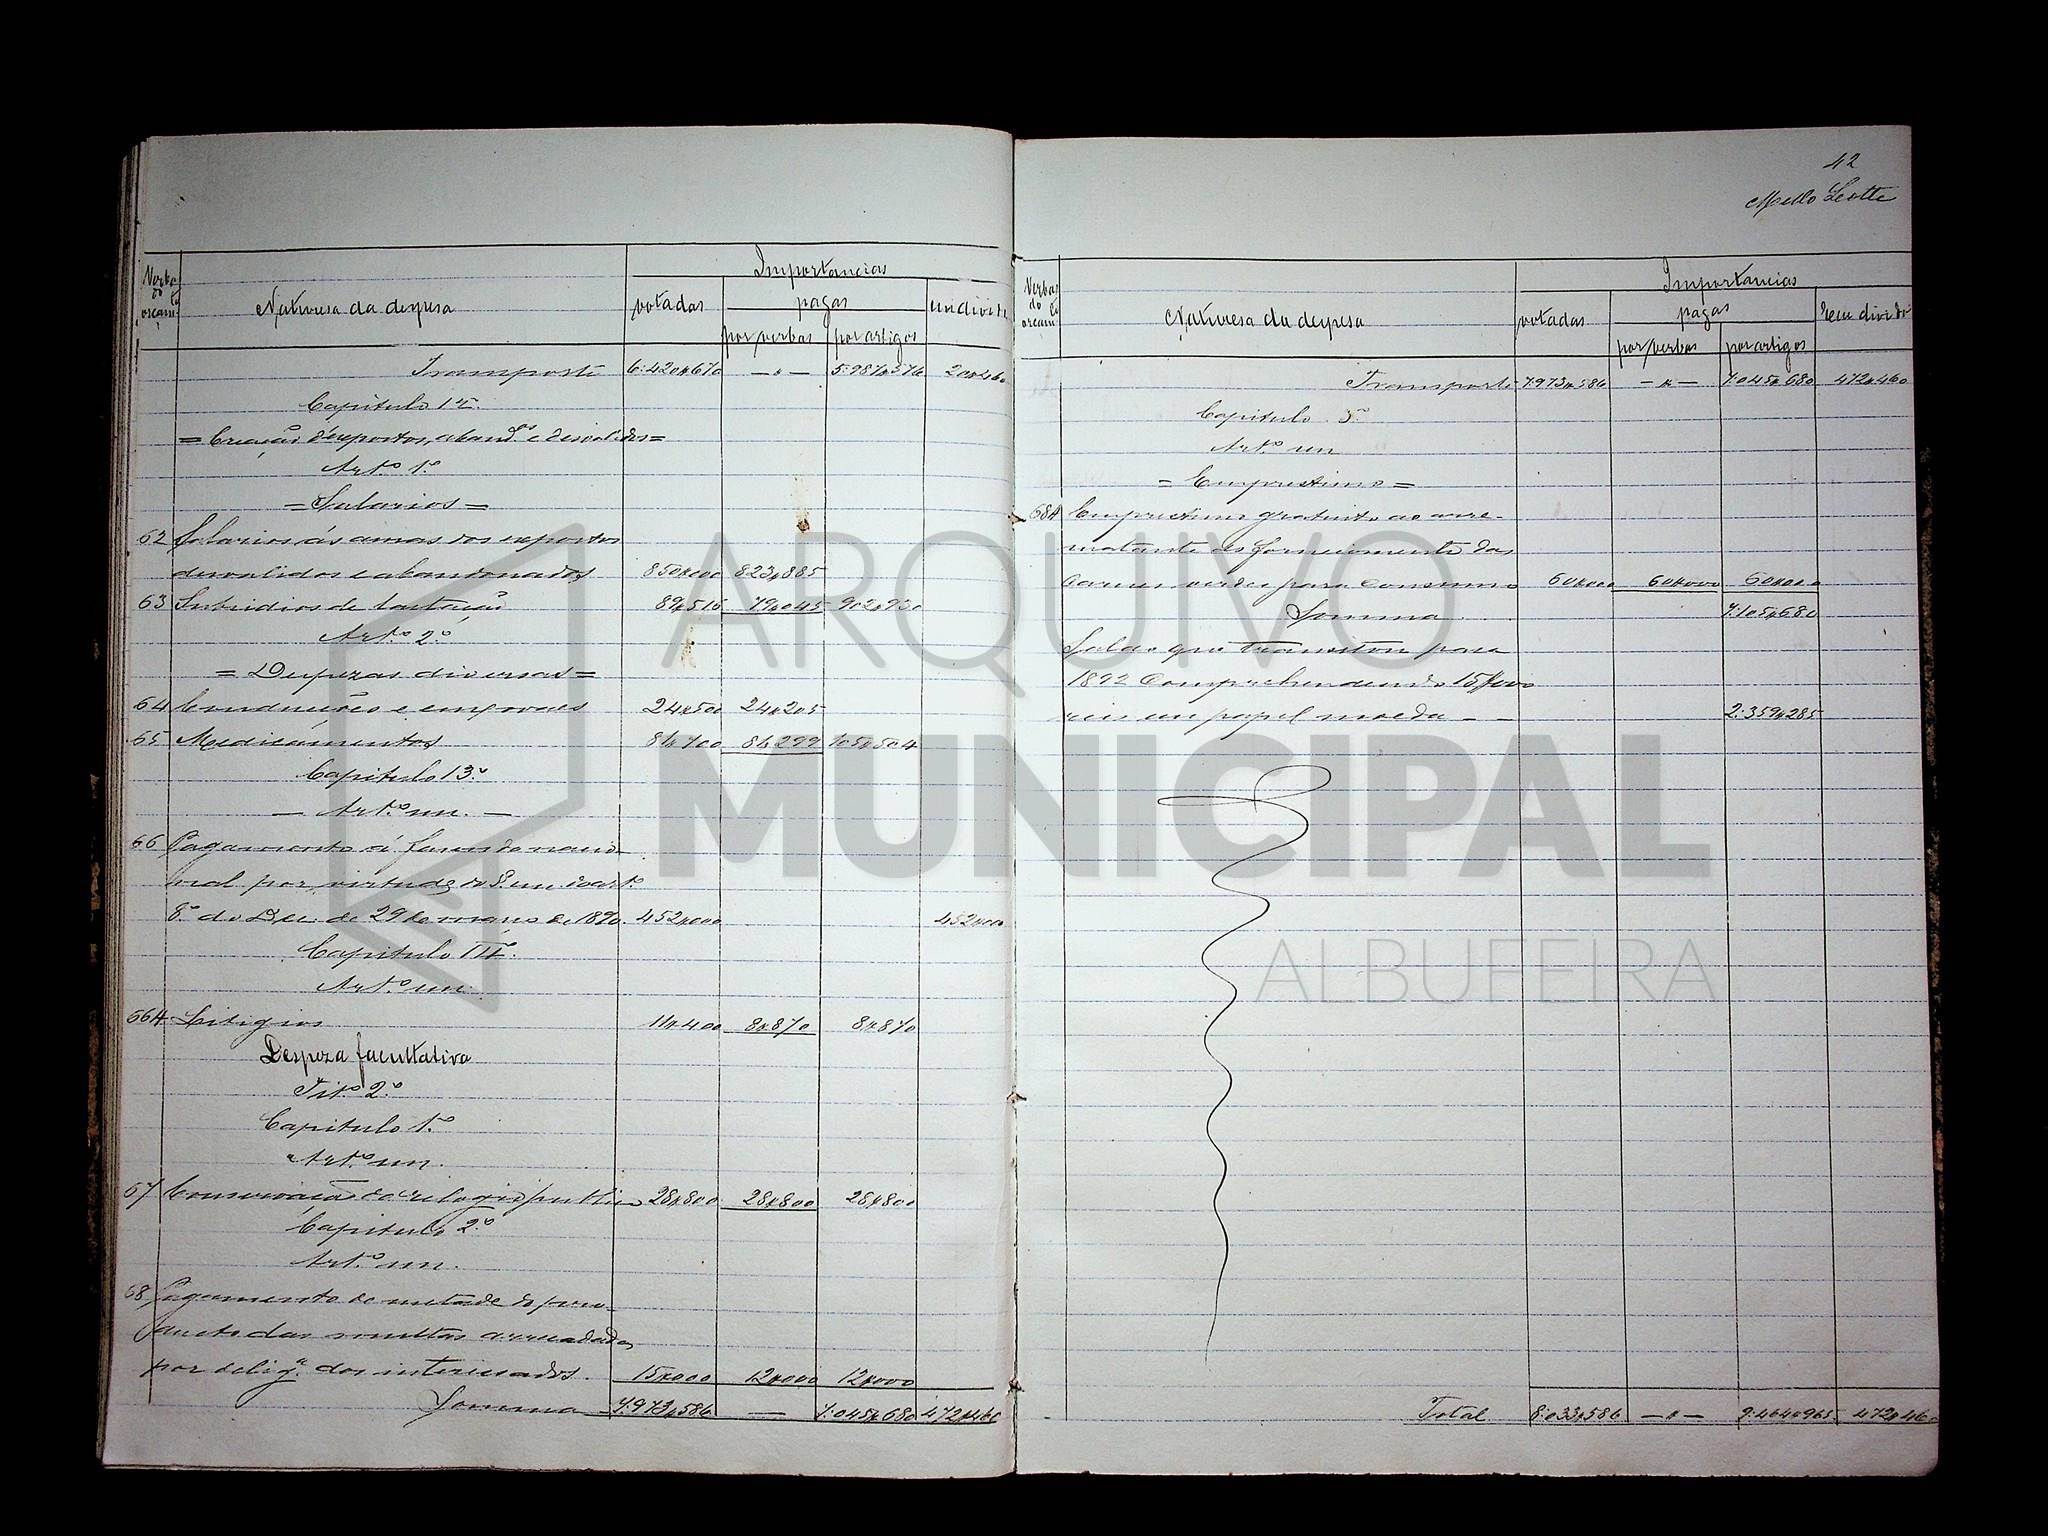 Verbas do orçamto
Naturesa da despesa
Importancias
votadas
pagas
em divida
por verbas
por artigos
Transporte 6:420$670 —"— 5:987$576 20$460
Capitulo 12.
= Creação d'expostos, aband.os e desvalidos =
Art.o 1.o
= Salarios =
62 Salarios ás amas dos expostos
desvalidos e abandonados 850$000 823$885
63 Subsidios de lactação 89$516 79$045 902$930
Art.o 2.o
= Despezas diversas =
64 Conducções e enxovaes 24$500 24$205
65 Medicamentos 81$700 81$299 105$504
Capitulo 13.o
— Art.o un. —
66 Pagamento á fazenda nacio-
nal por virtude do §. un. do art.o
8.o do Dec. de 29 de março de 1890. 452$000 452$000
Capitulo III.
Art.o un.
66A Litigios 11$400 8$870 8$870
Despeza facultativa
Tit.o 2.o
Capitulo 1.o
Art.o un.
67 Conservação do relogio publico 28$800 28$800 28$800
Capitulo 2.o
Art.o un.
68 Pagamento de metade do pro-
ducto das multas arrecadadas
por delig.a dos interessados. 15$000 12$000 12$000
Somma 7:973$586 — 7:045$680 472$460
42
Mello Leotte
Verbas do orçamto
Naturesa da despesa
Importancias
votadas
pagas
em divida
por verbas
por artigos
Transporte 7:973$586 —"— 7:045$680 472$460
Capitulo 3.o
Art.o un
= Emprestimo =
68A Emprestimo gratuito ao arre-
matante do fornecimento das
carnes verdes para consumo 60$000 60$000 60$000
Somma 7:105$680
Saldo que transitou para
1892 comprehendendo 15$000
reis em papel moeda — — 2:359$285
Total 8:033$586 —"— 9:464$965 472$460
ARQUIVO
MUNICIPAL
ALBUFEIRA